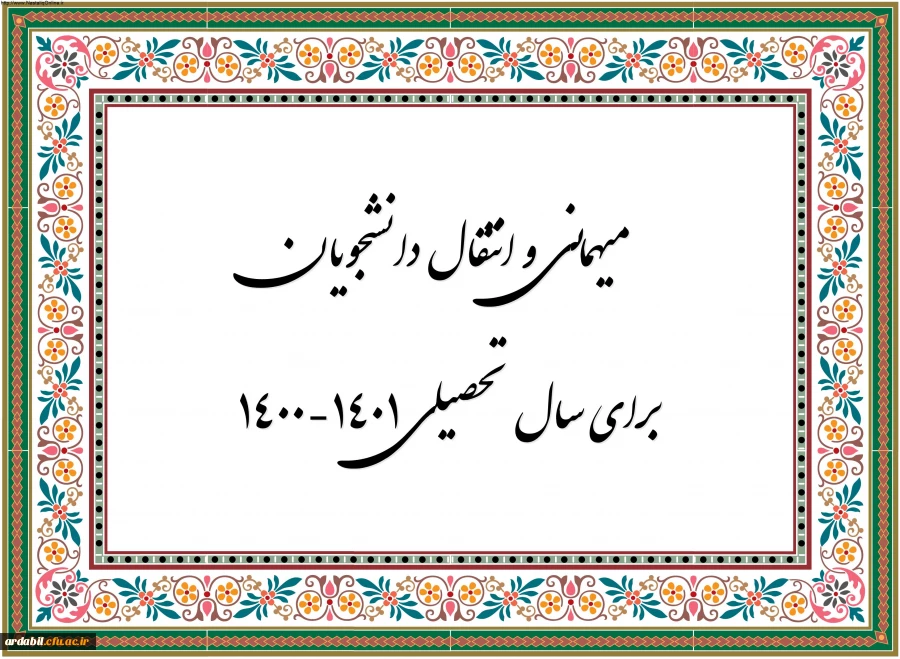 http://www.NastaliqOnline.ir
میهمانی و انتقال دانشجویان
برای سال تحصیلی ۱۴۰۱-۱۴۰۰
ardabil.cfu.ac.ir